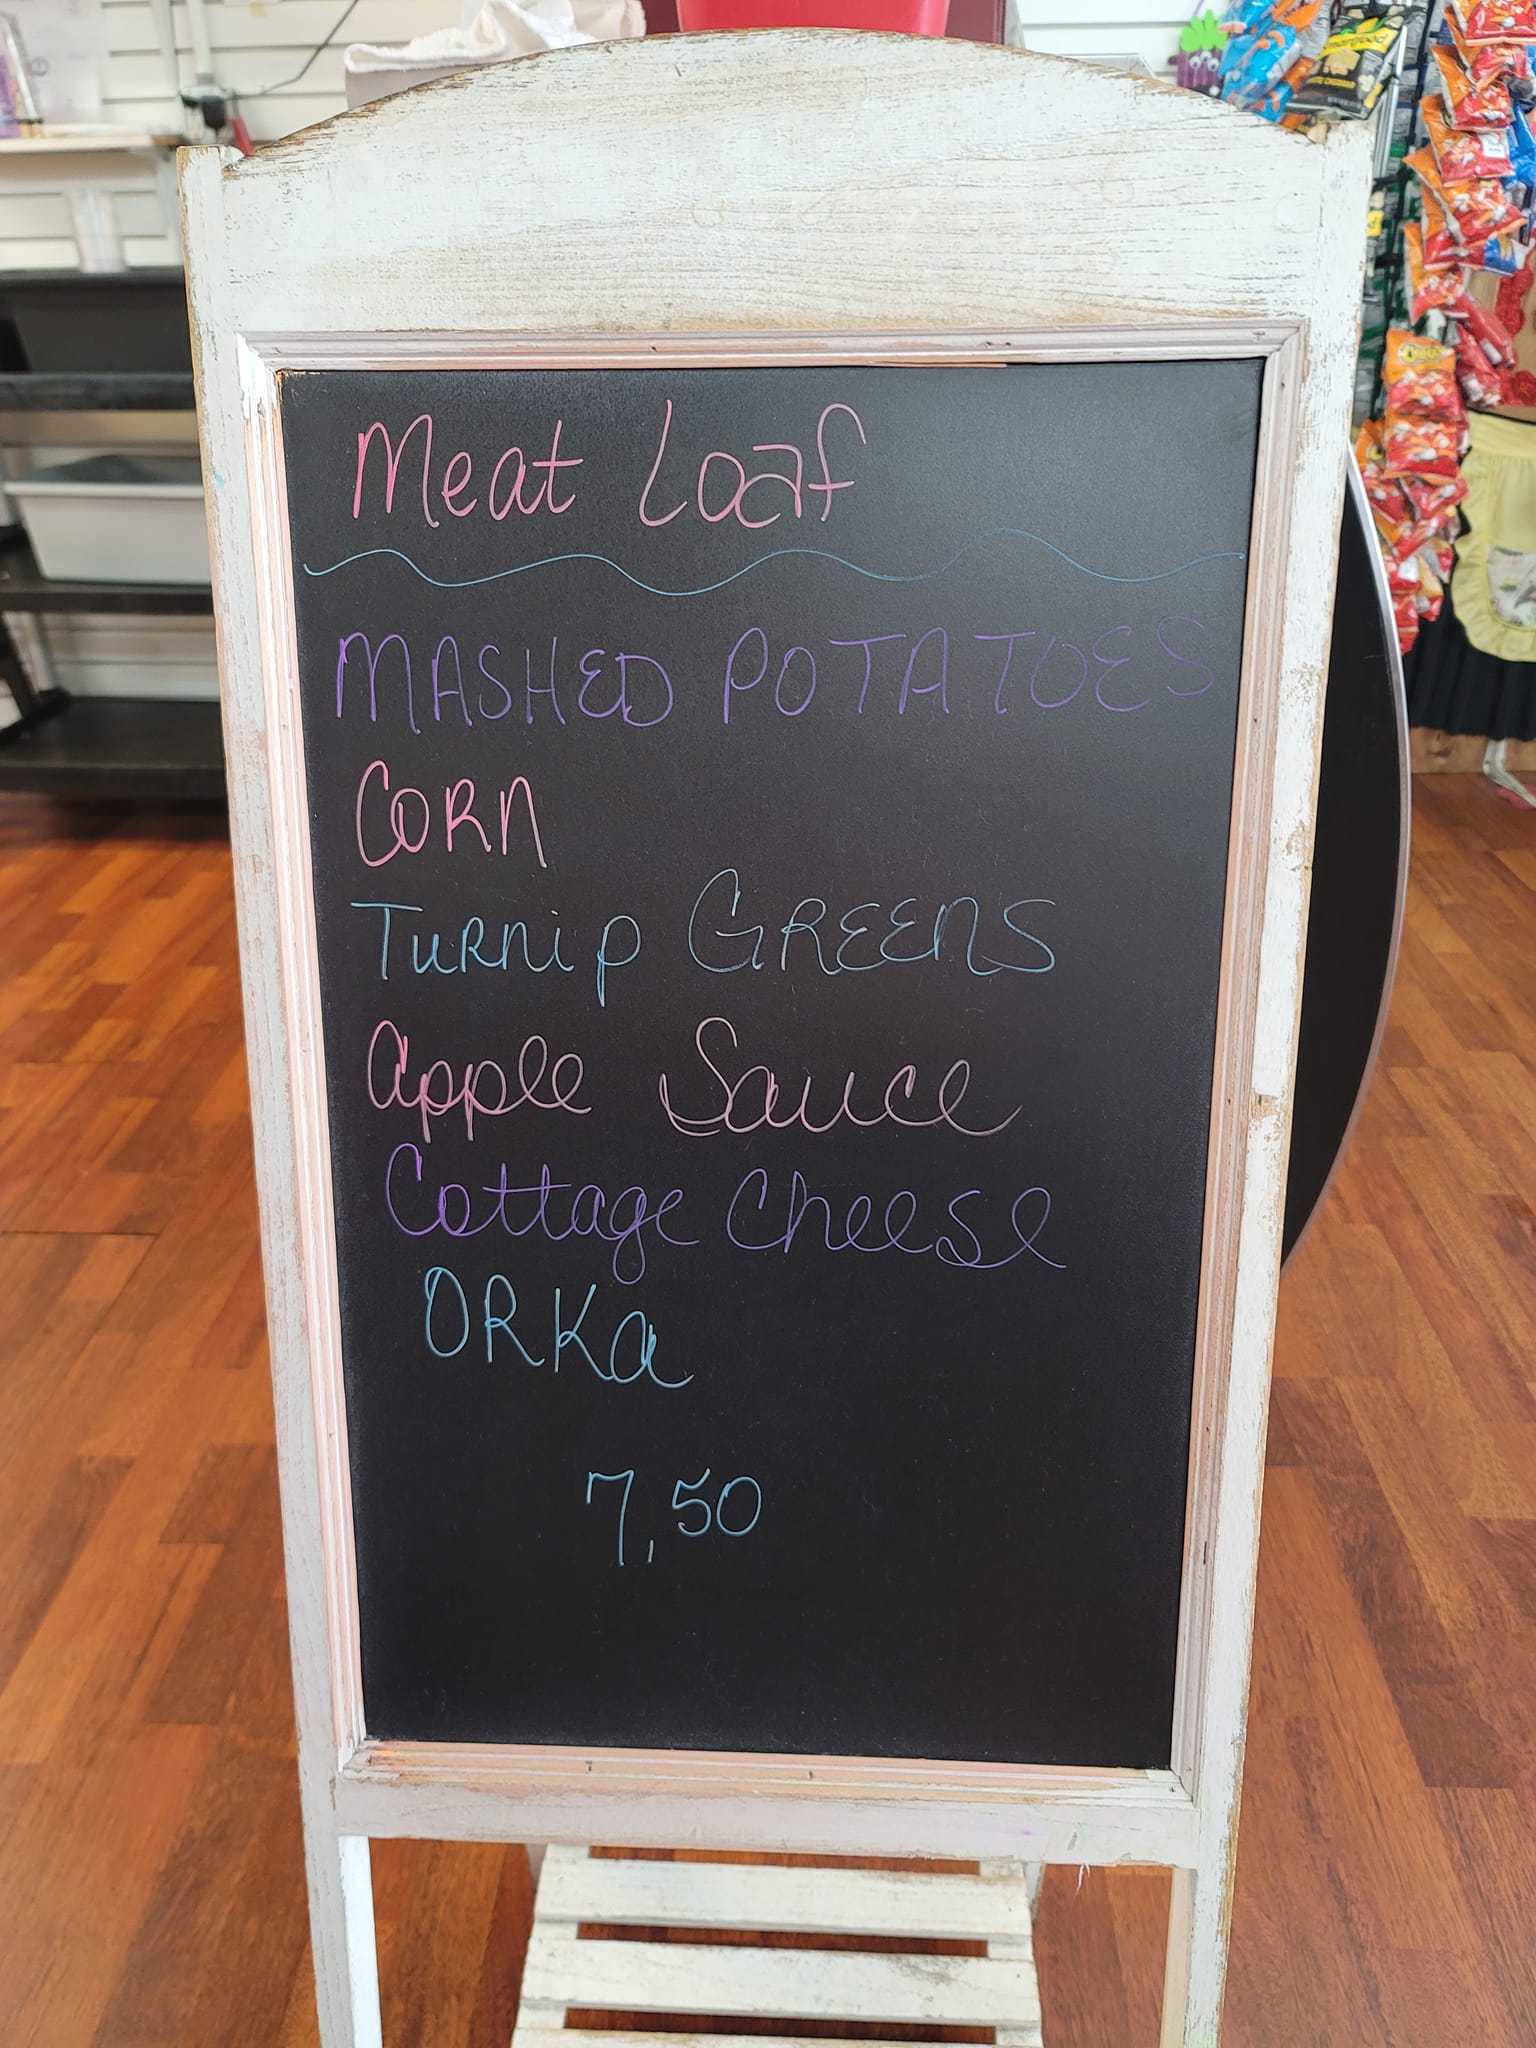 Meat Loaf
MASHED POTATOES
CORN
TURNIP GREENS
Apple Sauce
Cottage Cheese
ORKa
7,50